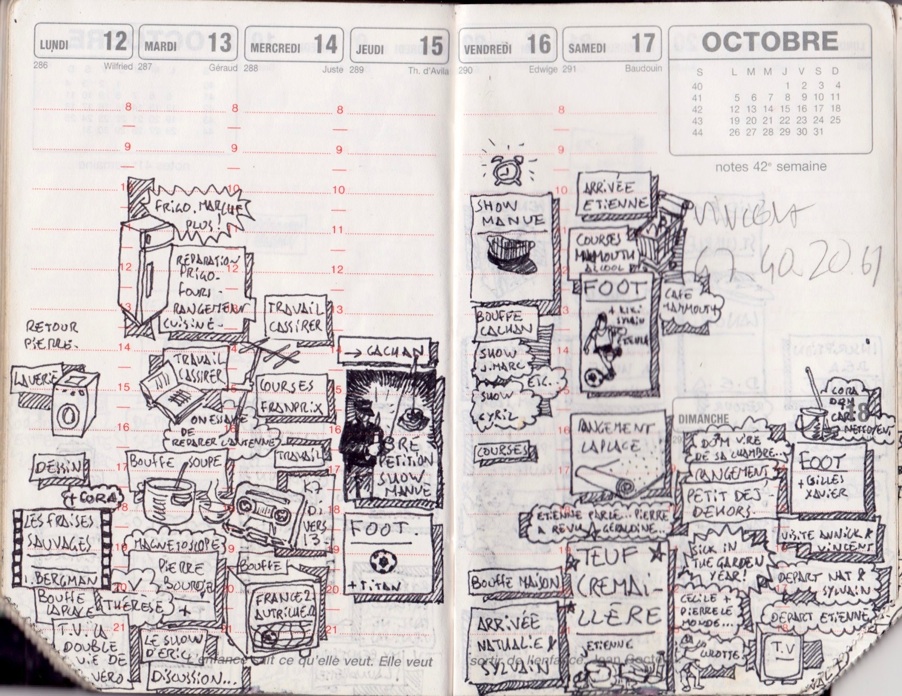 LUNDI 12
286 Wilfried
RETOUR
PIERRE.
LAVERIE
DESSIN
+ CORA
LES FRAISES
SAUVAGES
I. BERGMAN
BOUFFE
LAPLACE
T.V. LA
DOUBLE
VIE DE
MARDI 13
287 Géraud
8
9
10
11
12
13
14
15
16
17
18
19
20
21
FRIGO. MARCHE
PLUS!
REPARATION
FRIGO.
FOUR.
RANGEMENT
CUISINE.
TRAVAIL
CASSIRER
ON ESSAYE
DE
REPARER L'ANTENNE
BOUFFE SOUPE
MAGNETOSCOPE
PIERRE
BOURDIEU
THÉRÈSE +
LE SHOW
D'ERIC.
DISCUSSION...
MERCREDI 14
288 Juste
8
9
10
11
12
13
TRAVAIL
CASSIRER
COURSES
FRANPRIX
TRAVAIL
K7
DI
VERS
BOUFFE
FRANCE 2
AUTRICHE 1
JEUDI 15
289 Th. d'Avila
→ CACHAN
RE
PETITION
SHOW
MANUE
FOOT
+ TITAN
L'enfance sait ce qu'elle veut. Elle veut
VENDREDI 16
290 Edwige
8
9
10
11
12
13
14
15
16
17
18
19
20
21
SHOW
MANUE
BOUFFE
CACHAN
SHOW
J. MARC
ETC...
SHOW
CYRIL
COURSES
ETIENNE PARLE... PIERRE
A REVU GÉRALDINE...
BOUFFE MAISON
ARRIVÉE
NATHALIE &
SYLVAIN
SAMEDI 17
291 Baudouin
ARRIVÉE
ETIENNE
COURSES
MAMMOUTH
ALCOOL
CAFE
MAMMOUTH
FOOT
RANGEMENT
LAPLACE
TEUF
CREMAI-
LLÈRE
ETIENNE
sortir de l'enfance. Jean Cocteau
OCTOBRE
S L M M J V S D
40 1 2 3 4
41 5 6 7 8 9 10 11
42 12 13 14 15 16 17 18
43 19 20 21 22 23 24 25
44 26 27 28 29 30 31
notes 42e semaine
VINCENT
47 40.20.61
DIMANCHE 18
CORA
DOM
CARO
NETTOYENT
DOM VIRE
DE SA CHAMBRE...
RANGEMENT
PETIT DEJ
DEHORS.
FOOT
+ GILLES
XAVIER
VISITE ANNICK &
VINCENT
SICK IN
THE GARDEN
YEAR!
DEPART NAT &
SYLVAIN
CECILE +
PIERRE LE
MONDE...
DEPART ETIENNE
T.V